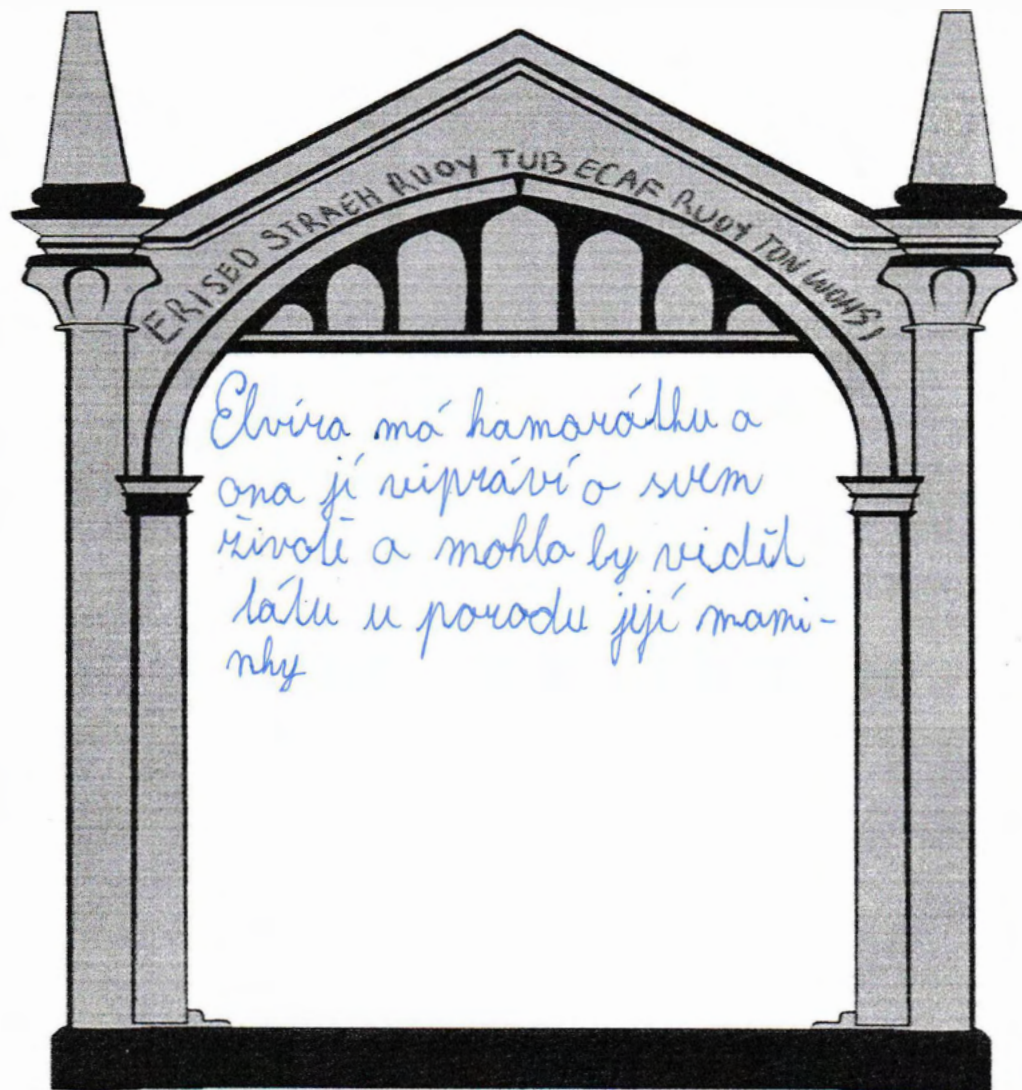 ERISED STRAEH RUOY TUB ECAF RUOY TON WOHSI
Elvíra má kamarátku a
ona jí vipráví o svem
životě a mohla by vidět
tátu u porodu její mami-
nky